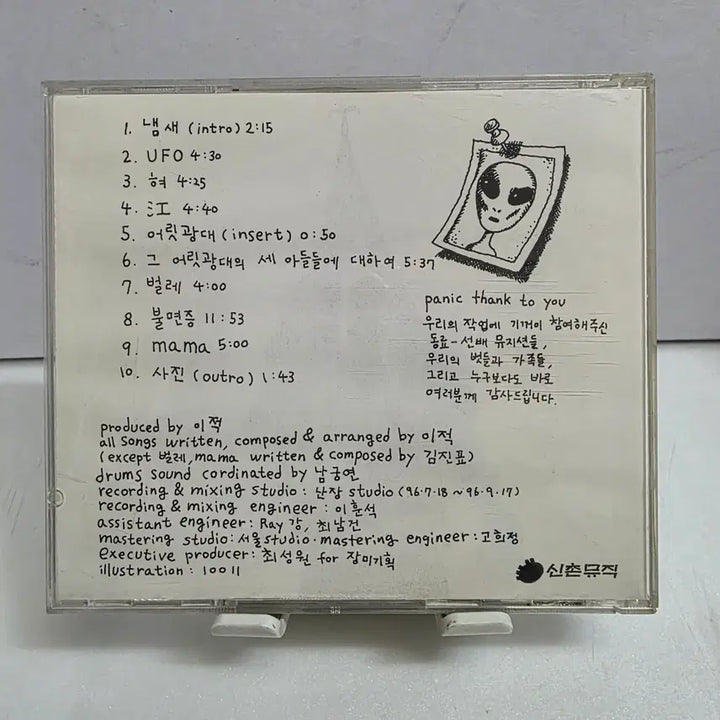 1. 냄새 (intro) 2:15
2. UFO 4:30
3. 혀 4:25
4. 江 4:40
5. 어릿광대 (insert) 0:50
6. 그 어릿광대의 세 아들들에 대하여 5:37
7. 벌레 4:00
8. 불면증 11:53
9. mama 5:00
10. 사진 (outro) 1:43
panic thank to you
우리의 작업에 기꺼이 참여해주신
동료-선배 뮤지션들,
우리의 벗들과 가족들,
그리고 누구보다도 바로
여러분께 감사드립니다.
produced by 이적
all songs written, composed & arranged by 이적
(except 벌레, mama written & composed by 김진표)
drums sound cordinated by 남궁연
recording & mixing studio : 난장 studio (96·7·18 ~ 96·9·17)
recording & mixing engineer : 이훈석
assistant engineer : Ray 강, 최남건
mastering studio : 서울 studio · mastering engineer : 고희정
executive producer : 최성원 for 장미기획
illustration : 10011
신촌뮤직